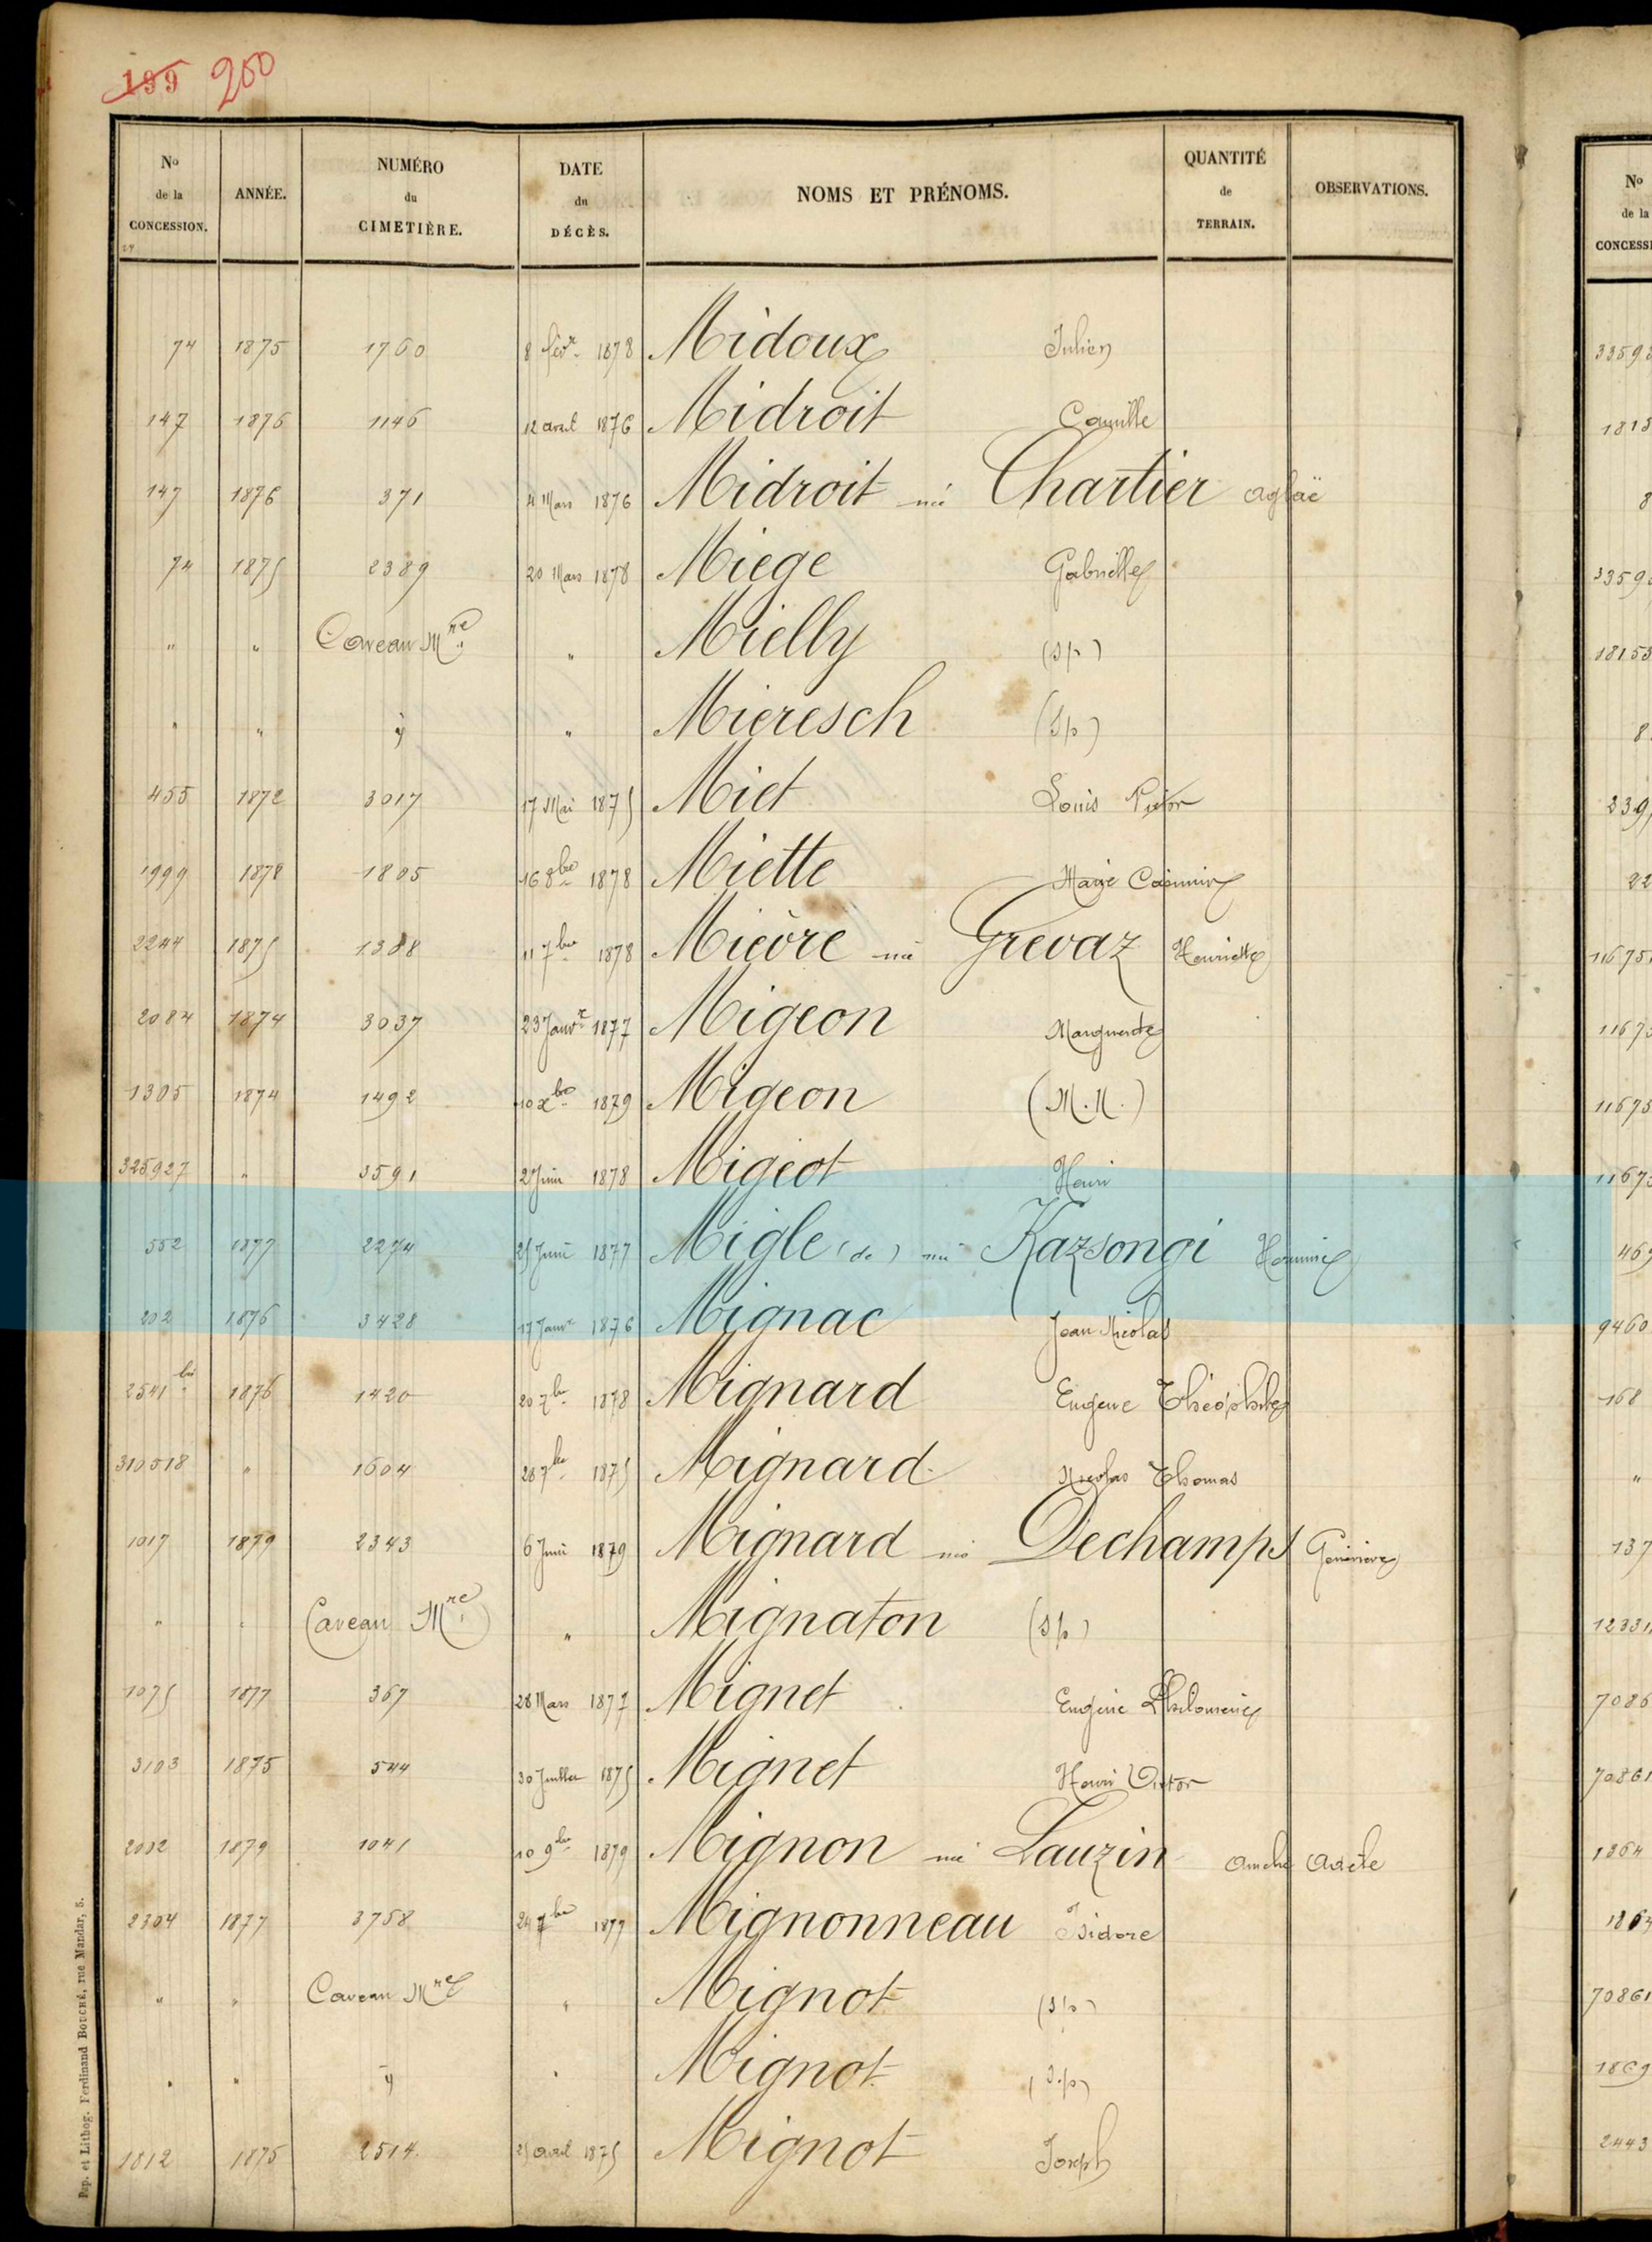 199 200
No de la CONCESSION. ANNÉE. NUMÉRO du CIMETIÈRE. DATE du DÉCÈS. NOMS ET PRÉNOMS. QUANTITÉ de TERRAIN. OBSERVATIONS.
74 1875 1760 8 févr. 1878 Midoux Julien
147 1876 1146 12 avril 1876 Midroit Camille
147 1876 371 4 Mars 1876 Midroit née Chartier Aglaë
74 1875 2389 20 Mars 1878 Miege Gabrielle
" " Caveau Mre " Mielly (s/p)
" " y " Mieresch (s/p)
455 1872 3017 17 Mai 1875 Miet Louis Victor
1999 1878 1805 16 8bre 1878 Miette Marie Casimir
2244 1875 1388 11 7bre 1878 Mièvre née Grevaz Henriette
2084 1874 3037 23 Janvr 1877 Migeon Marguerite
1305 1874 1492 10 xbre 1879 Migeon (M.N.)
325927 " 3591 2 Juin 1878 Migeot Henri
552 1877 2274 25 Juin 1877 Migle (de) née Kazsongi Hermine
202 1876 3428 17 Janvr 1876 Mignac Jean Nicolas
2541 bis 1876 1420 20 7bre 1878 Mignard Eugene Théophile
310518 " 1604 28 7bre 1875 Mignard Nicolas Thomas
1017 1879 2343 6 Juin 1879 Mignard née Dechamps Geneviève
" " Caveau Mre " Mignaton (s/p)
1075 1877 367 28 Mars 1877 Mignet Eugénie Philomène
3103 1875 544 30 Juillet 1875 Mignet Henri Victor
2032 1879 1041 10 9bre 1879 Mignon née Lauzin Adèle
2304 1877 3758 24 7bre 1877 Mignonneau Isidore
" " Caveau Mre " Mignot (s/p)
" " y " Mignot (s/p)
1812 1875 2514 25 avril 1875 Mignot Joseph
Pap. et Lithog. Ferdinand BOUCHÉ, rue Mandar, 5.
No
de la
CONCESSI